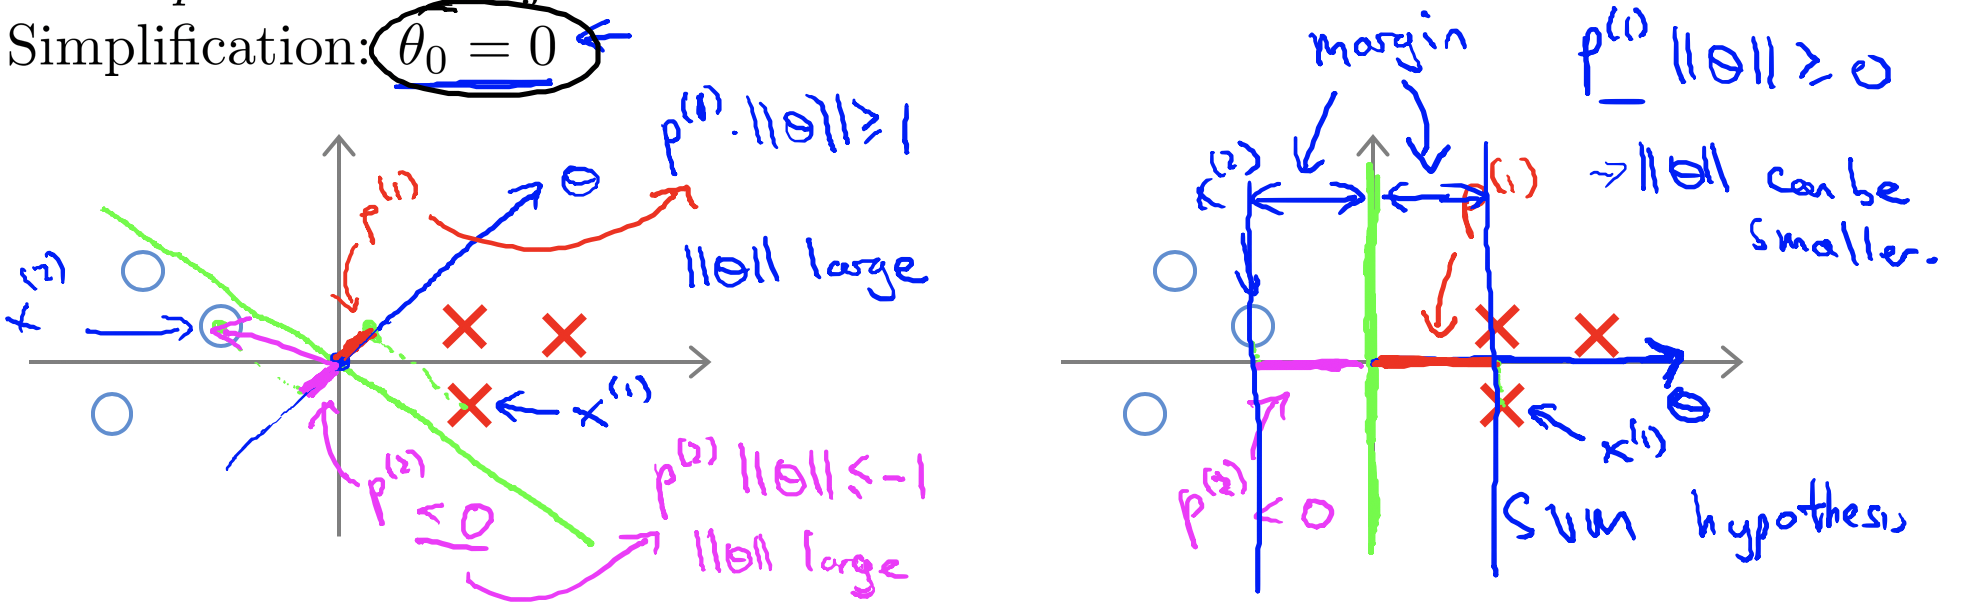 Simplification: θ₀ = 0
p⁽¹⁾ · ||θ|| ≥ 1
θ
p⁽¹⁾
||θ|| large
x⁽²⁾
x⁽¹⁾
p⁽²⁾ < 0
p⁽²⁾ ||θ|| ≤ -1
||θ|| large
margin
p⁽¹⁾ ||θ|| ≥ 0
→ ||θ|| can be
smaller.
x⁽²⁾
p⁽¹⁾
θ
x⁽¹⁾
p⁽²⁾ < 0
SVM hypothesis